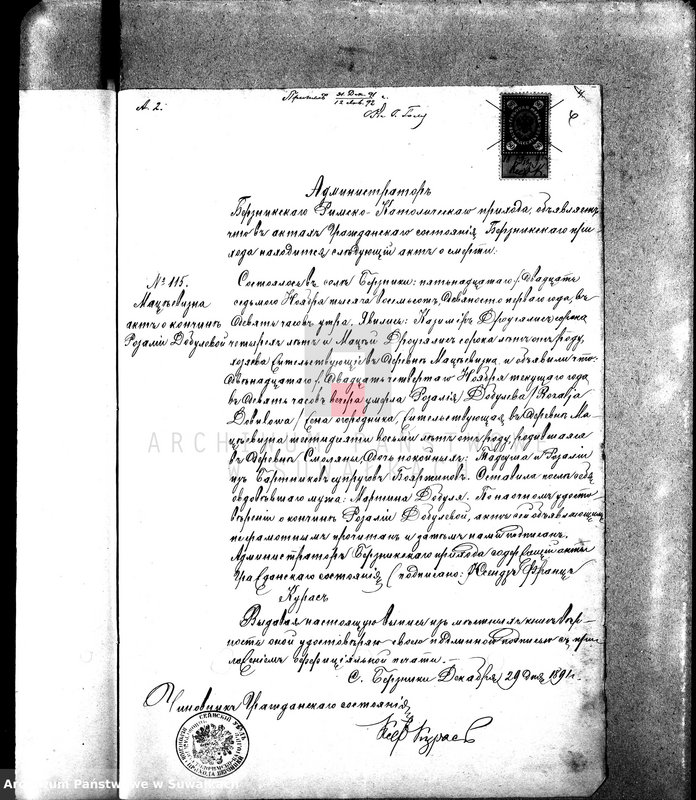 А. 2.
31 Дек. 91 г.
12 Янв. 92
Администраторъ
Берзникскаго Римско-Католическаго прихода, объявляетъ
что въ актахъ Гражданскаго состоянія Берзникскаго при-
хода находится слѣдующій актъ о смерти.
№ 115.
Мацьевизна
актъ о кончинѣ
Розаліи Добулевой
Состоялось въ селѣ Берзники: пятьнадцатаго / Двадцать
седьмаго Ноября тысяча восемьсотъ Девяносто перваго года, въ
Девять часовъ утра. Явились: Казиміръ Другялисъ сорока
четырехъ лѣтъ и Мацѣй Другялисъ сорока лѣтъ отъ роду,
хозяева жительствующіе въ Деревнѣ Мацьевизна, и объявили что:
Двѣнадцатаго / Двадцать четвертаго Ноября текущаго года
въ Девять часовъ вечера умерла Розалія Добулева / Rozalja
жена огородника, жительствующая въ Деревнѣ Ма-
цьевизна шестидесяти восьми лѣтъ отъ роду, родившаяся
въ Деревнѣ Смоляны, Дочь покойныхъ: Тадеуша и Розаліи
изъ супруговъ Оставила послѣ себя
овдовѣвшаго мужа: Мартина Добуля. По настоящемъ удосто-
вѣреніи о кончинѣ Розаліи Добулевой, актъ сей объявляющимъ
неграмотнымъ прочитанъ и затѣмъ нами подписанъ.
Администраторъ Берзникскаго прихода содержащій акты
Гражданскаго состоянія (подписано: Ксендзъ Францъ
Курасъ
Выдавая настоящую выпись изъ мѣстныхъ книгъ вѣр-
ность оной удостовѣряю своею подлинною подписью съ при-
ложеніемъ оффиціальной печати.
С. Берзники Декабря 29 дня 1891 г.
Чиновникъ Гражданскаго состоянія
Кс Ф Курасъ
ARCHIWUM PAŃSTWOWE
W SUWAŁKACH
Archiwum Państwowe w Suwałkach